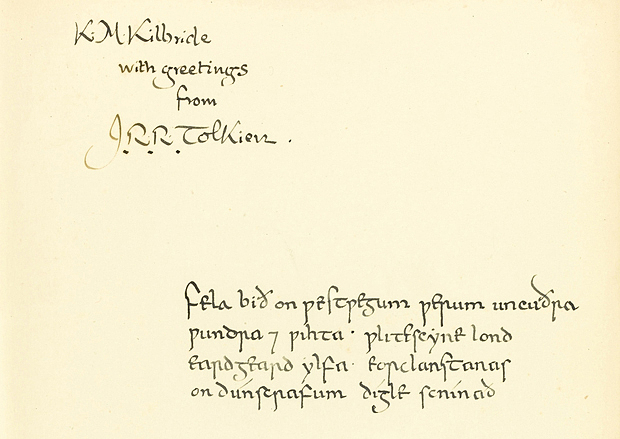 K.M. Kilbride
with greetings
from
J.R.R. Tolkien.
Fela bið on ƿestƿegum ƿerum uncúðra
ƿundra ⁊ ƿihta · ƿlitescyne lond
eardgeard ylfa · eorclanstanas
on dúnscrafum digle scínað